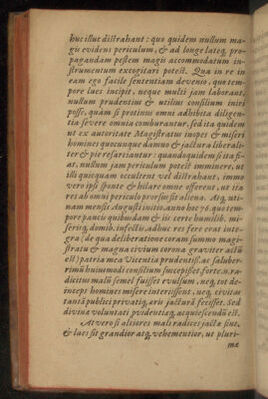 huc illuc distrahant: quo quidem nullum ma-
gis evidens periculum, & ad longe lateq́, pro-
pagandam pestem magis accommodatum in-
strumentum excogitari potest. Qua in re in
eam ego facile sententiam devenio, que tem-
pore lues incipit, neque multi jam laborant,
nullum prudentius & utilius consilium iniri
posse, quàm si protinus omni adhibita diligen-
tia severe omnia comburantur, sed ita quidem
ut ex autoritate Magistratus inopes & miseri
homines quocunque damno & jactura liberali-
ter & pie resarciantur: quandoquidem si ita fi-
at, nullum jam periculum potest imminere, ut
illi quicquam occultent vel distrahant, immo
vero ipsi sponte & hilare omne offerent, ut ita
res ab omni periculo prorsus sit aliena. Atq, uti-
nam mensis Augusti initio, anno hoc 76. quo tem-
pore paucis quibusdam & iis certe humilib. mi-
seriisq, domib. infectis, adhuc res fere erat inte-
gra (de qua deliberatione coram summo magi-
stratu & magna civium corona graviter actū
est) patria mea Vicentia prudentiss. ac saluber-
rimū huiusmodi consilium suscepisset forte. n. ra-
dicitus malū semel fuisset evulsum, neq, tot de-
inceps homines misere interiissent, neq, civitas
tantā publici privatiq, aris jacturā fecisset. Sed
divina voluntati pvidentiaq, acquiescendū est.
At vero si altiores mali radices jacta sint,
& lues sit grandior atq, vehementior, ut pluri-
ma